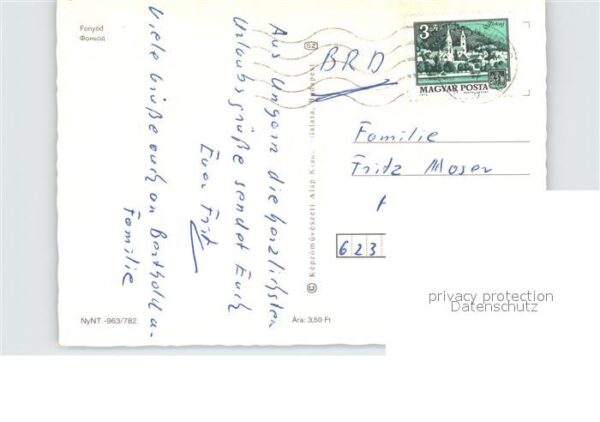 Fonyód
Фоньод
Aus Ungarn die herzlichsten
Urlaubsgrüße sendet Euch
Euer Fritz
Viele Grüße auch an Berthold u.
Familie
NyNT.-963/782.
Ára: 3,50 Ft
© Képzőművészeti Alap Kiadóvállalata, Budapest
BRD
3 Ft
MAGYAR POSTA
Familie
Fritz Moser
623
privacy protection
Datenschutz